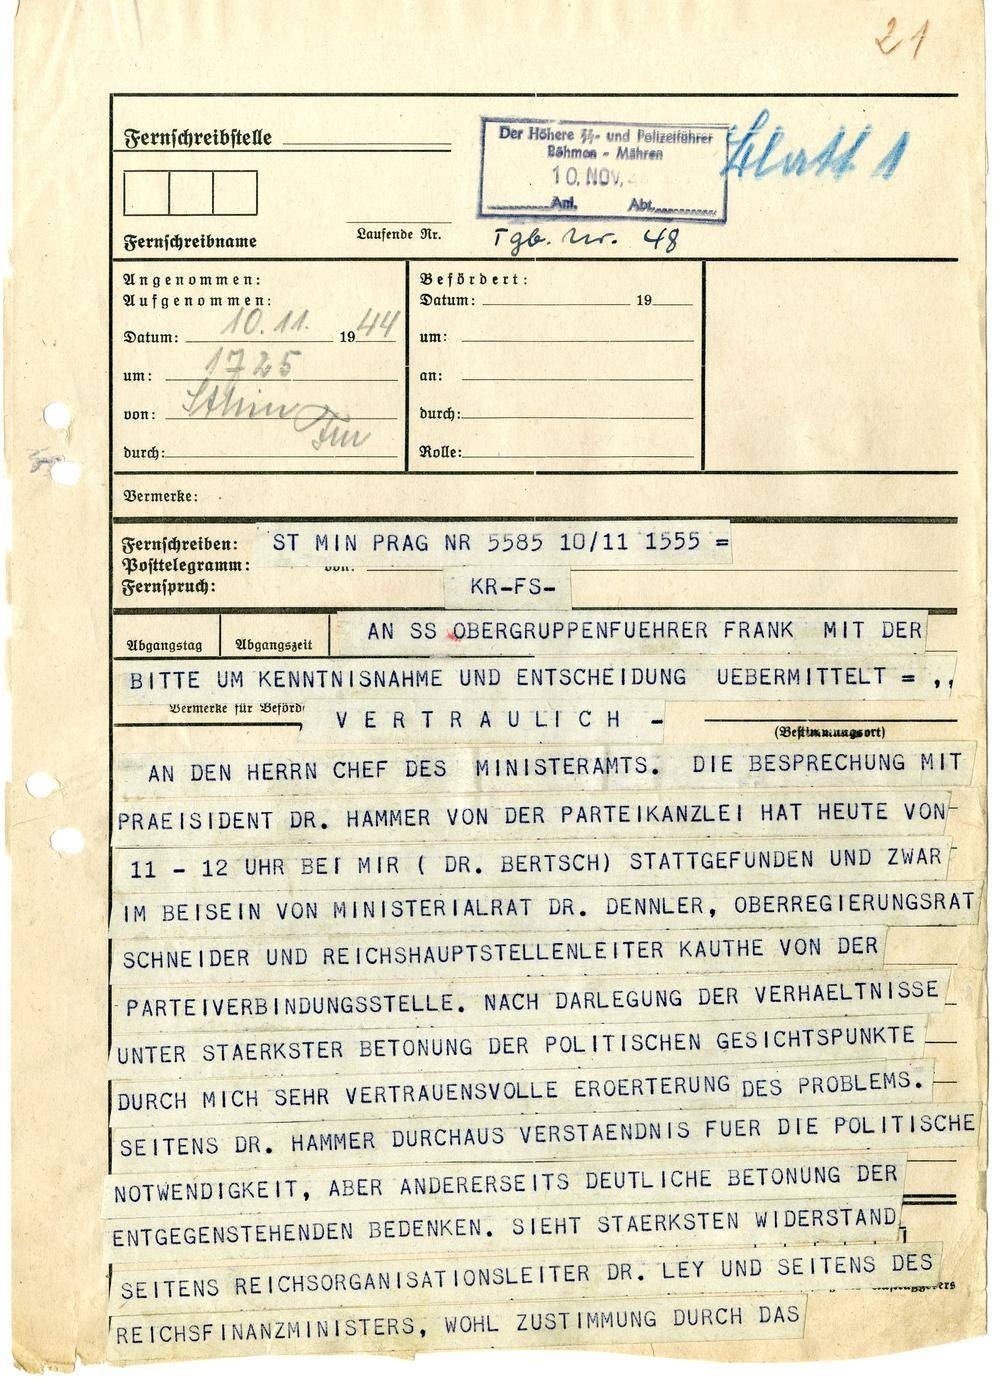 21
Fernschreibstelle
Der Höhere SS- und Polizeiführer
Böhmen - Mähren
10. NOV.
Anl. Abt.
Blatt 1
Fernschreibname
Laufende Nr.
Tgb. Nr. 48
Angenommen:
Aufgenommen:
Datum: 10.11. 1944
um: 1725
von:
durch:
Befördert:
Datum: 19
um:
an:
durch:
Rolle:
Vermerke:
Fernschreiben: ST MIN PRAG NR 5585 10/11 1555 =
Posttelegramm: von:
Fernspruch: KR-FS-
Abgangstag Abgangszeit AN SS OBERGRUPPENFUEHRER FRANK MIT DER
BITTE UM KENNTNISNAHME UND ENTSCHEIDUNG UEBERMITTELT = ,,
Vermerke für Beförd
VERTRAULICH -
(Bestimmungsort)
AN DEN HERRN CHEF DES MINISTERAMTS. DIE BESPRECHUNG MIT
PRAEISIDENT DR. HAMMER VON DER PARTEIKANZLEI HAT HEUTE VON
11 - 12 UHR BEI MIR ( DR. BERTSCH) STATTGEFUNDEN UND ZWAR
IM BEISEIN VON MINISTERIALRAT DR. DENNLER, OBERREGIERUNGSRAT
SCHNEIDER UND REICHSHAUPTSTELLENLEITER KAUTHE VON DER
PARTEIVERBINDUNGSSTELLE. NACH DARLEGUNG DER VERHAELTNISSE
UNTER STAERKSTER BETONUNG DER POLITISCHEN GESICHTSPUNKTE
DURCH MICH SEHR VERTRAUENSVOLLE EROERTERUNG DES PROBLEMS.
SEITENS DR. HAMMER DURCHAUS VERSTAENDNIS FUER DIE POLITISCHE
NOTWENDIGKEIT, ABER ANDERERSEITS DEUTLICHE BETONUNG DER
ENTGEGENSTEHENDEN BEDENKEN. SIEHT STAERKSTEN WIDERSTAND
SEITENS REICHSORGANISATIONSLEITER DR. LEY UND SEITENS DES
REICHSFINANZMINISTERS, WOHL ZUSTIMMUNG DURCH DAS